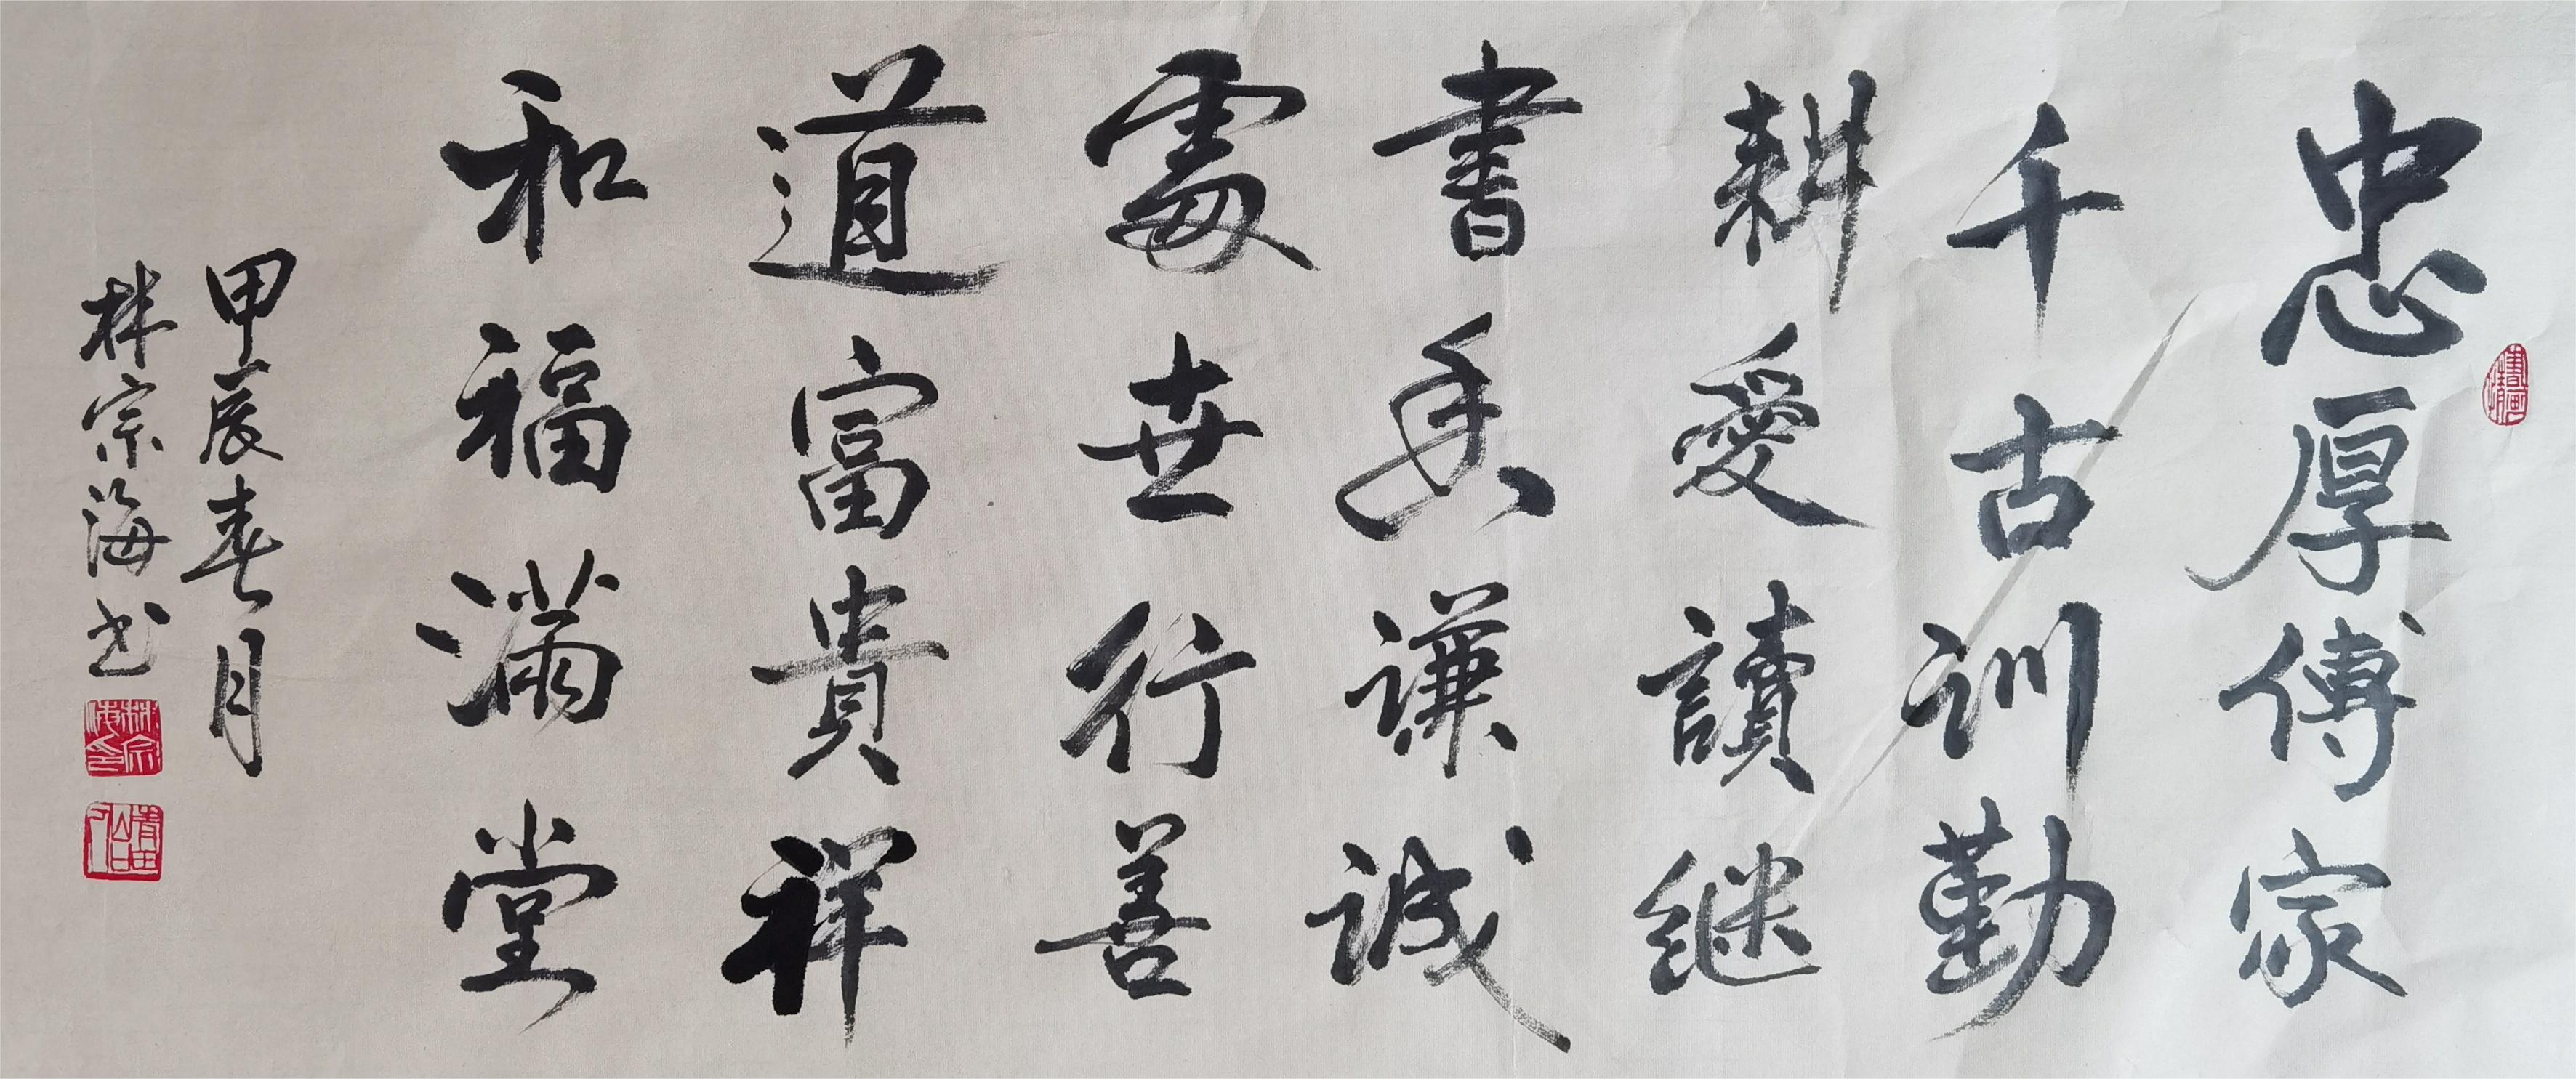 忠厚傳家
千古訓勤
耕愛讀继
書香謙誠
處世行善
道富貴祥
和福滿堂
甲辰春月
林宗海书